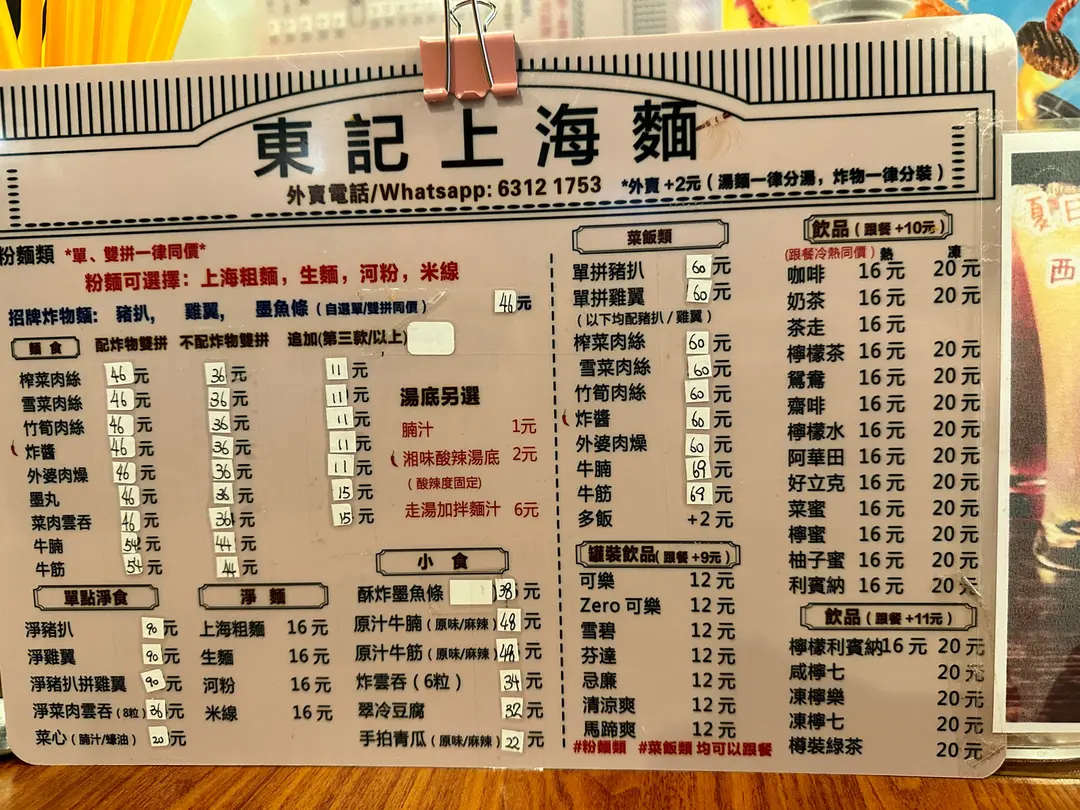 東記上海麵
外賣電話/Whatsapp: 6312 1753 *外賣 +2元 ( 湯麵一律分湯，炸物一律分裝 )
粉麵類 *單、雙拼一律同價*
粉麵可選擇：上海粗麵，生麵，河粉，米線
招牌炸物麵： 豬扒， 雞翼， 墨魚條 ( 自選單/雙拼同價 ) 46元
麵食 配炸物雙拼 不配炸物雙拼 追加(第三款/以上)
榨菜肉絲 46元 36元 11元
雪菜肉絲 46元 36元 11元
竹筍肉絲 46元 36元 11元
炸醬 46元 36元 11元
外婆肉燥 46元 36元 11元
墨丸 46元 36元 15元
菜肉雲吞 46元 36元 15元
牛腩 54元 44元
牛筋 54元 44元
湯底另選
腩汁 1元
湘味酸辣湯底 2元
( 酸辣度固定)
走湯加拌麵汁 6元
單點淨食
淨豬扒 90元
淨雞翼 90元
淨豬扒拼雞翼 90元
淨菜肉雲吞 (8粒) 36元
菜心 ( 腩汁/蠔油 ) 20元
淨麵
上海粗麵 16元
生麵 16元
河粉 16元
米線 16元
小食
酥炸墨魚條 38元
原汁牛腩 ( 原味/麻辣 ) 48元
原汁牛筋 ( 原味/麻辣 ) 48元
炸雲吞 ( 6粒 ) 34元
翠冷豆腐 32元
手拍青瓜 ( 原味/麻辣 ) 22元
菜飯類
單拼豬扒 60元
單拼雞翼 60元
( 以下均配豬扒 / 雞翼 )
榨菜肉絲 60元
雪菜肉絲 60元
竹筍肉絲 60元
炸醬 60元
外婆肉燥 60元
牛腩 69元
牛筋 69元
多飯 +2元
罐裝飲品( 跟餐 +9元 )
可樂 12元
Zero 可樂 12元
雪碧 12元
芬達 12元
忌廉 12元
清涼爽 12元
馬蹄爽 12元
#粉麵類 #菜飯類 均可以跟餐
飲品 ( 跟餐 +10元 )
(跟餐冷熱同價 ) 熱 凍
咖啡 16元 20元
奶茶 16元 20元
茶走 16元
檸檬茶 16元 20元
鴛鴦 16元 20元
齋啡 16元 20元
檸檬水 16元 20元
阿華田 16元 20元
好立克 16元 20元
菜蜜 16元 20元
檸蜜 16元 20元
柚子蜜 16元 20元
利賓納 16元 20元
飲品 ( 跟餐 +11元 )
檸檬利賓納16元 20元
咸檸七 20元
凍檸樂 20元
凍檸七 20元
樽裝綠茶 20元
夏日
西